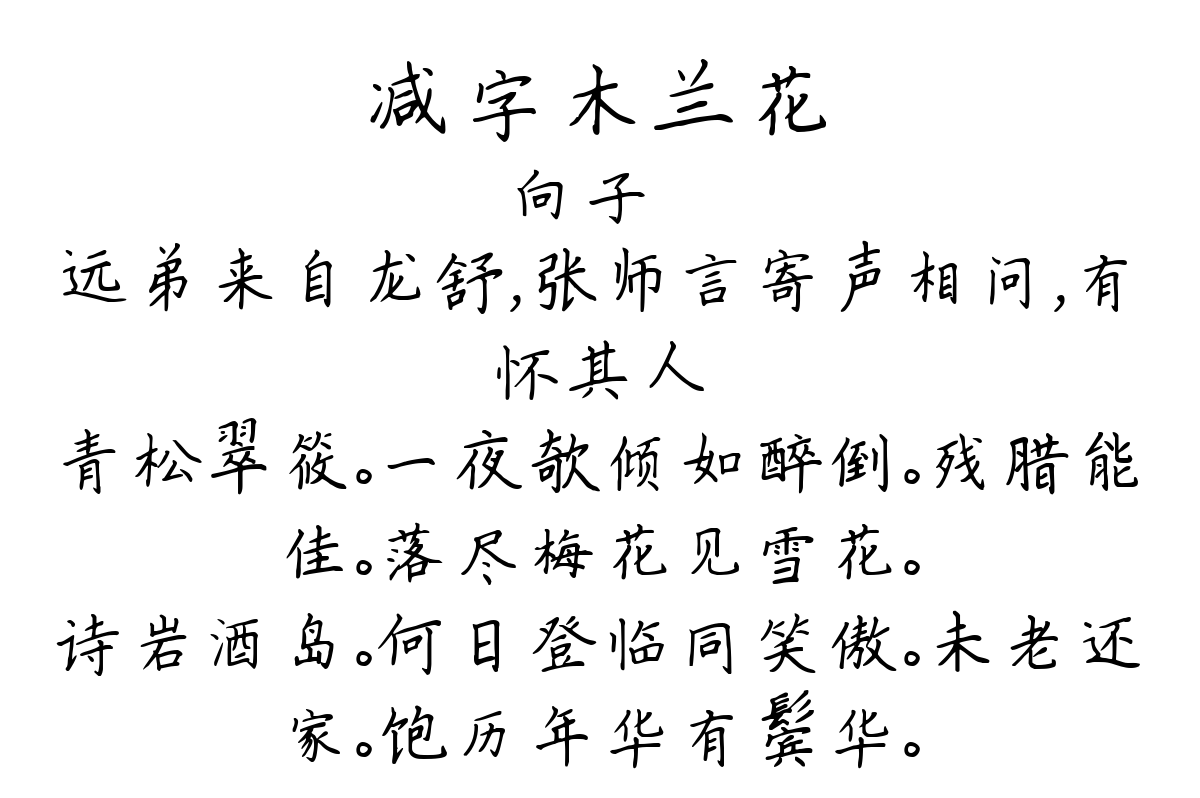 减字木兰花
向子
远弟来自龙舒,张师言寄声相问,有
怀其人
青松翠筱。一夜欹倾如醉倒。残腊能
佳。落尽梅花见雪花。
诗岩酒岛。何日登临同笑傲。未老还
家。饱历年华有鬓华。